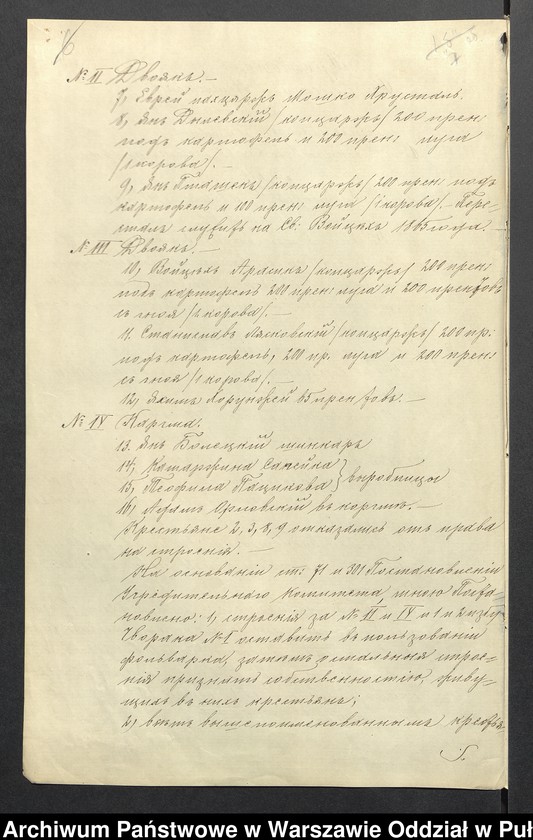 6
№ II Двоякъ. —
7, Еврей полцарокъ Мошко Хрусталь.
8, Янъ Дылевскій /концарокъ/ 200 прен:
подъ картофель и 200 прен: луга
/1 корова/. —
9, Янъ Пташекъ /концарокъ/ 200 прен: подъ
картофель и 100 прен: луга /1 корова/. Пере-
сталъ служить на Св: Войцеха 1865 года. —
№ III Двоякъ. —
10, Войцехъ /концарокъ/ 200 прен:
подъ картофель 200 прен: луга и 200 прентовъ
съ гноя /1 корова/. —
11. Станиславъ Ляховскій /концарокъ/ 200 пр:
подъ картофель, 200 пр. луга и 200 прен:
съ гноя /1 корова/. —
12, Якимъ Хорунжей 65 прентовъ. —
№ IV Каргма.
13. Янъ шинкарь
14, Катаржина
15, Теофила } выробницы
16, Адамъ Орловскій въ коргмѣ. —
Крестьяне 2, 3, 8, 9 отказались отъ права
на строенія. —
На основаніи ст: 71 и 301 Постановленія
Учредительнаго Комитета мною Поста-
новлено: 1, строенія за № II и IV и 1 и 2 избу
Чворака № I оставить въ пользованіи
фольварка, затѣмъ остальныя строе-
нія признать собственностію, живу-
щихъ въ нихъ крестьянъ;
2, всѣмъ вышепоименованнымъ крестья
Archiwum Państwowe w Warszawie Oddział w Puł